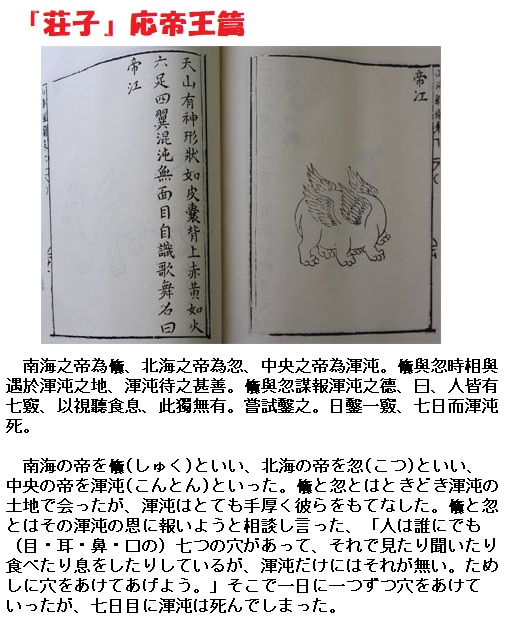 「荘子」応帝王篇
帝江
天山有神形狀如皮囊背上赤黄如火
六足四翼混沌無面目自識歌舞名曰
帝江
南海之帝為儵、北海之帝為忽、中央之帝為渾沌。儵與忽時相與
遇於渾沌之地、渾沌待之甚善。儵與忽謀報渾沌之德、曰、人皆有
七竅、以視聽食息、此獨無有。嘗試鑿之。日鑿一竅、七日而渾沌
死。
南海の帝を儵(しゅく)といい、北海の帝を忽(こつ)といい、
中央の帝を渾沌(こんとん)といった。儵と忽とはときどき渾沌の
土地で会ったが、渾沌はとても手厚く彼らをもてなした。儵と忽
とはその渾沌の恩に報いようと相談し言った、「人は誰にでも
（目・耳・鼻・口の）七つの穴があって、それで見たり聞いたり
食べたり息をしたりしているが、渾沌だけにはそれが無い。ため
しに穴をあけてあげよう。」そこで一日に一つずつ穴をあけて
いったが、七日目に渾沌は死んでしまった。